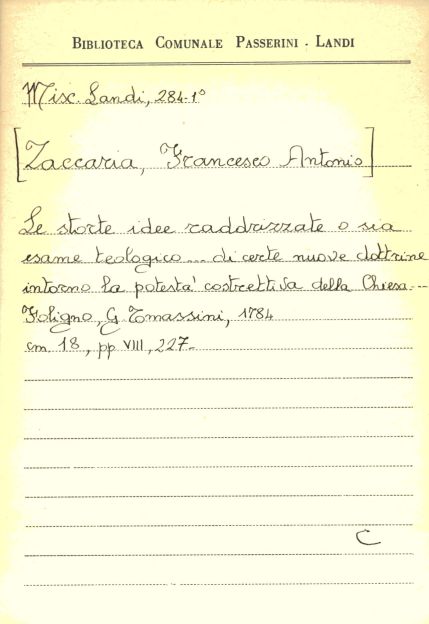 BIBLIOTECA COMUNALE PASSERINI - LANDI
Misc. Landi, 284-1°
[Zaccaria, Francesco Antonio]
Le storte idee raddrizzate o sia
esame teologico... di certe nuove dottrine
intorno la potestà costrettiva della Chiesa...
Foligno, G. Tomassini, 1784
cm. 18, pp VIII, 227-
C